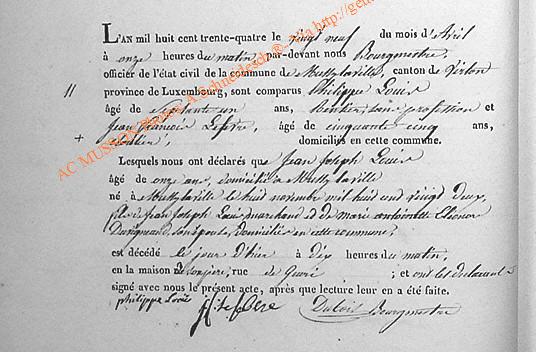 L'AN mil huit cent trente-quatre le vingt neuf du mois d'Avril
à onze heures du matin, par-devant nous Bourgmestre,
officier de l'état civil de la commune de Mussy la ville, canton de Virton
province de Luxembourg, sont comparus Philippe Louis
âgé de septante un ans, rentier, sans profession et
Jean François Lefevre, âgé de cinquante cinq ans,
domiciliés en cette commune.
Lesquels nous ont déclarés que Jean Joseph Louis
âgé de onze ans, domicilié à Mussy la ville
né à Mussy la ville le huit novembre mil huit cent vingt deux,
fils de Jean Joseph Louis marchand et de Marie Eléonor
son épouse, domiciliés en cette commune,
est décédé le jour d'hier à dix heures du matin,
en la maison de son père, rue de ; et ont les déclarants
signé avec nous le présent acte, après que lecture leur en a été faite.
philippe Louis J f Lefevre Bourgmestre
AC MUSSON Photos A Schneidesch ®- Via http://gen